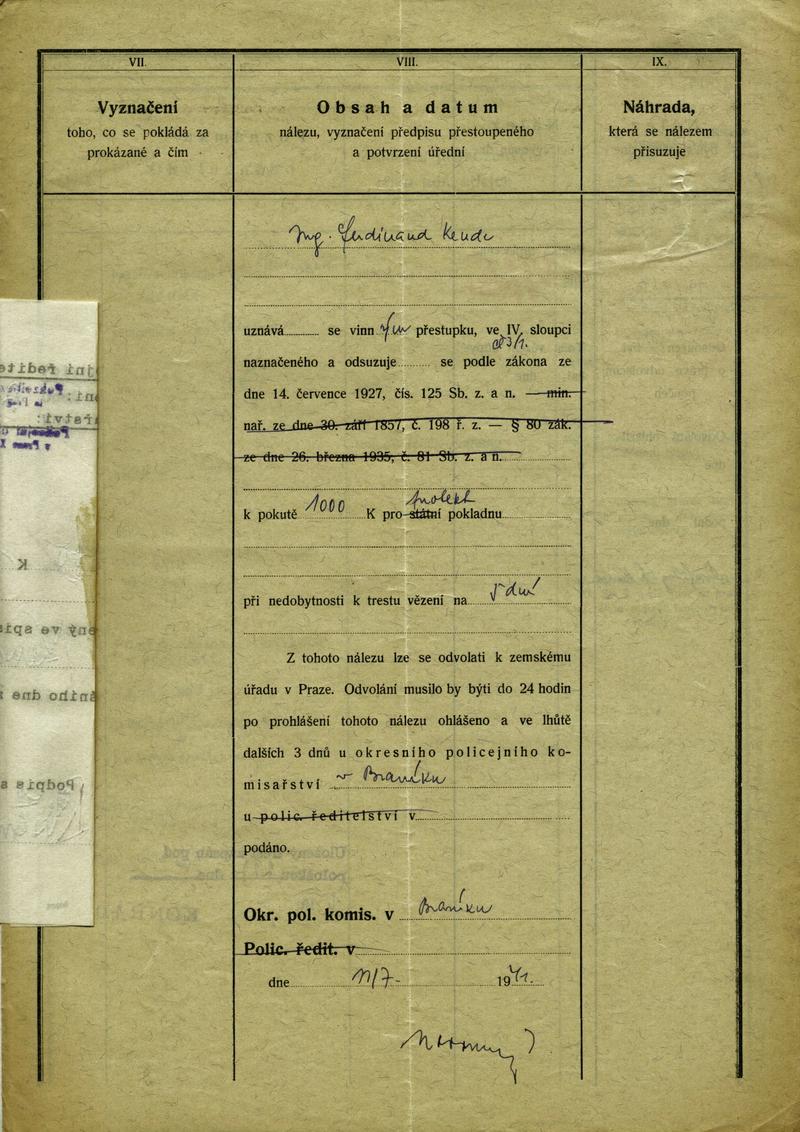 VII.
VIII.
IX.
Vyznačení
toho, co se pokládá za
prokázané a čím
Obsah a datum
nálezu, vyznačení předpisu přestoupeného
a potvrzení úřední
Náhrada,
která se nálezem
přisuzuje
Ing. Ferdinand Kende
uznává se vinn ým přestupku, ve IV. sloupci
naznačeného a odsuzuje se podle zákona ze
dne 14. července 1927, čís. 125 Sb. z. a n. — min.
nař. ze dne 30. září 1857, č. 198 ř. z. — § 80 zák.
ze dne 26. března 1935, č. 81 Sb. z. a n.
k pokutě 1000 K pro státní pokladnu
při nedobytnosti k trestu vězení na
Z tohoto nálezu lze se odvolati k zemskému
úřadu v Praze. Odvolání musilo by býti do 24 hodin
po prohlášení tohoto nálezu ohlášeno a ve lhůtě
dalších 3 dnů u okresního policejního ko-
misařství v Braníku
u polic. ředitelství v
podáno.
Okr. pol. komis. v Braníku
Polic. ředit. v
dne 11/7- 1941.